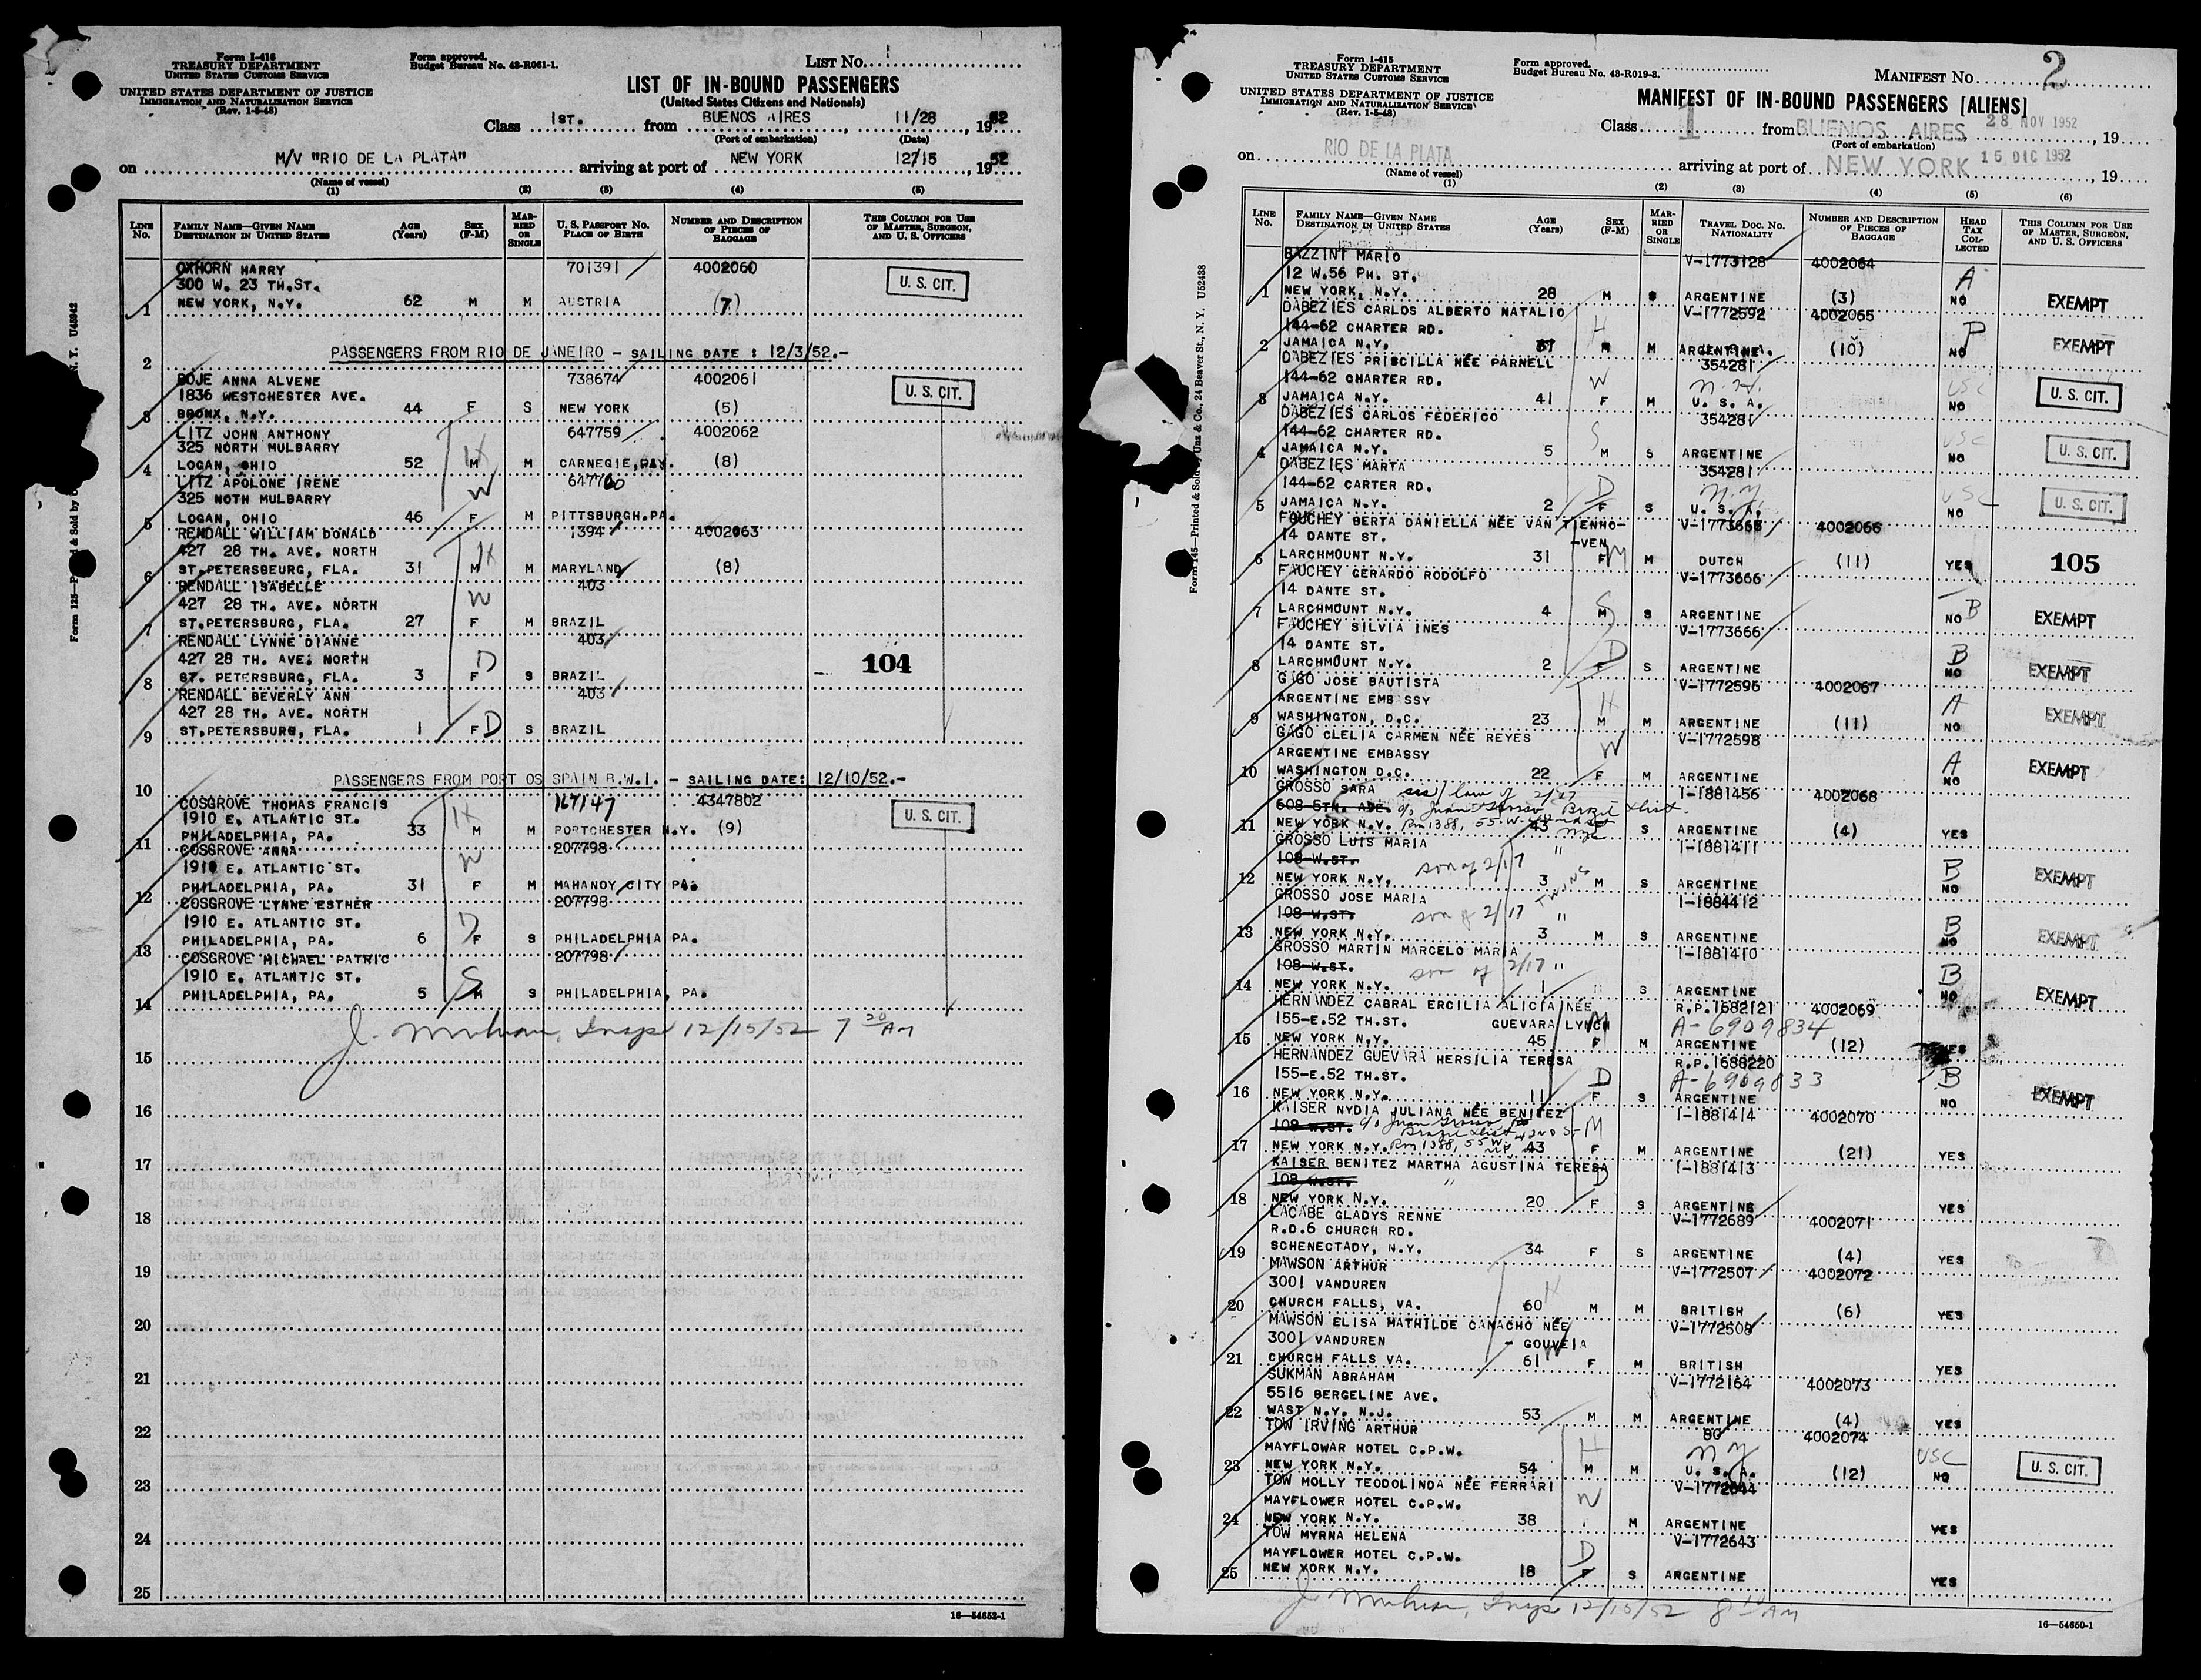 Form I-416
TREASURY DEPARTMENT
UNITED STATES CUSTOMS SERVICE
UNITED STATES DEPARTMENT OF JUSTICE
IMMIGRATION AND NATURALIZATION SERVICE
(Rev. 1-5-48)
Form approved.
Budget Bureau No. 43-R061-1.
LIST No.
LIST OF IN-BOUND PASSENGERS
(United States Citizens and Nationals)
Class 1ST. from BUENOS AIRES, 11/28, 1952
(Port of embarkation) (Date)
on M/V "RIO DE LA PLATA" arriving at port of NEW YORK 12/15, 1952
(Name of vessel)
(1) (2) (3) (4) (5)
LINE No. FAMILY NAME—GIVEN NAME DESTINATION IN UNITED STATES AGE (Years) SEX (F-M) MARRIED OR SINGLE U. S. PASSPORT No. PLACE OF BIRTH NUMBER AND DESCRIPTION OF PIECES OF BAGGAGE THIS COLUMN FOR USE OF MASTER, SURGEON, AND U. S. OFFICERS
OXHORN HARRY 701391 4002060
300 W. 23 TH.ST. U. S. CIT.
1 NEW YORK, N.Y. 62 M M AUSTRIA (7)
2 PASSENGERS FROM RIO DE JANEIRO - SAILING DATE : 12/3/52.-
BOJE ANNA ALVENE 738674 4002061
1836 WESTCHESTER AVE. U. S. CIT.
3 BRONX, N.Y. 44 F S NEW YORK (5)
LITZ JOHN ANTHONY 647759 4002062
325 NORTH MULBARRY H
4 LOGAN, OHIO 52 M M CARNEGIE, PA. (8)
LITZ APOLONE IRENE 647760
325 NOTH MULBARRY W
5 LOGAN, OHIO 46 F M PITTSBURGH.PA.
RENDALL WILLIAM DONALD 1394 4002063
427 28 TH. AVE. NORTH H
6 ST.PETERSBEURG, FLA. 31 M M MARYLAND (8)
RENDALL ISABELLE 403
427 28 TH. AVE. NORTH W
7 ST.PETERSBURG, FLA. 27 F M BRAZIL
RENDALL LYNNE DIANNE 403
427 28 TH. AVE. NORTH D 104
8 ST. PETERSBURG, FLA. 3 F S BRAZIL
RENDALL BEVERLY ANN 403
427 28 TH. AVE. NORTH
9 ST.PETERSBURG, FLA. 1 F D S BRAZIL
10 PASSENGERS FROM PORT OS SPAIN B.W.I. - SAILING DATE: 12/10/52.-
COSGROVE THOMAS FRANCIS 167147 4347802
1910 E. ATLANTIC ST. H U. S. CIT.
11 PHILADELPHIA, PA. 33 M M PORTCHESTER N.Y. (9)
COSGROVE ANNA 207798
1910 E. ATLANTIC ST. W
12 PHILADELPHIA, PA. 31 F M MAHANOY CITY PA.
COSGROVE LYNNE ESTHER 207798
1910 E. ATLANTIC ST. D
13 PHILADELPHIA, PA. 6 F S PHILADELPHIA PA.
COSGROVE MICHAEL PATRIC 207798
1910 E. ATLANTIC ST. S
14 PHILADELPHIA, PA. 5 M S PHILADELPHIA, PA.
Insp 12/15/52 7 30 AM
15
16
17
18
19
20
21
22
23
24
25
16—54652-1
Form I-415
TREASURY DEPARTMENT
UNITED STATES CUSTOMS SERVICE
UNITED STATES DEPARTMENT OF JUSTICE
IMMIGRATION AND NATURALIZATION SERVICE
(Rev. 1-5-48)
Form approved.
Budget Bureau No. 43-R019-3.
MANIFEST No. 2
MANIFEST OF IN-BOUND PASSENGERS [ALIENS]
Class 1 from BUENOS AIRES 28 NOV 1952, 19
(Port of embarkation)
on RIO DE LA PLATA arriving at port of NEW YORK 15 DIC 1952, 19
(Name of vessel)
(1) (2) (3) (4) (5) (6)
LINE No. FAMILY NAME—GIVEN NAME DESTINATION IN UNITED STATES AGE (Years) SEX (F-M) MARRIED OR SINGLE TRAVEL DOC. No. NATIONALITY NUMBER AND DESCRIPTION OF PIECES OF BAGGAGE HEAD TAX COLLECTED THIS COLUMN FOR USE OF MASTER, SURGEON, AND U. S. OFFICERS
Form 145—Printed & Sold by Unz & Co., 24 Beaver St., N. Y. U52438
BAZZINI MARIO V-1773128 4002064
12 W.56 PH. ST. A
1 NEW YORK, N.Y. 28 M S ARGENTINE (3) NO EXEMPT
DABEZIES CARLOS ALBERTO NATALIO V-1772592 4002065
144-62 CHARTER RD. H P
2 JAMAICA N.Y. 37 M M ARGENTINE (10) NO EXEMPT
DABEZIES PRISCILLA NÉE PARNELL 354281
144-62 CHARTER RD. W N.Y. USC U. S. CIT.
3 JAMAICA N.Y. 41 F M U. S. A. NO
DABEZIES CARLOS FEDERICO 354281
144-62 CHARTER RD. S USC U. S. CIT.
4 JAMAICA N.Y. 5 M S ARGENTINE NO
DABEZIES MARTA 354281
144-62 CARTER RD. D N.Y. USC U. S. CIT.
5 JAMAICA N.Y. 2 F S U. S. A. NO
FAUCHEY BERTA DANIELLA NÉE VAN TIENHO- V-1773666 4002066
14 DANTE ST. -VEN
6 LARCHMOUNT N.Y. 31 F M M DUTCH (11) YES 105
FAUCHEY GERARDO RODOLFO V-1773666
14 DANTE ST. S
7 LARCHMOUNT N.Y. 4 M S ARGENTINE NO B EXEMPT
FAUCHEY SILVIA INES V-1773666
14 DANTE ST. D B
8 LARCHMOUNT N.Y. 2 F S ARGENTINE NO EXEMPT
GAGO JOSE BAUTISTA V-1772596 4002067
ARGENTINE EMB SSY H A
9 WASHINGTON, D.C. 23 M M ARGENTINE (11) NO EXEMPT
GAGO CLELIA CARMEN NÉE REYES V-1772598
ARGENTINE EMBASSY W A
10 WASHINGTON D.C. 22 F M ARGENTINE NO EXEMPT
GROSSO SARA sis/law of 2/17 I-1881456 4002068
608-5TH. AVE. c/o Juan Grosso
11 NEW YORK N.Y. Rm 1388, 55 W. 42nd St NYC 43 F S ARGENTINE (4) YES
GROSSO LUIS MARIA " I-1881411
108-W.ST. son of 2/17 B
12 NEW YORK N.Y. 3 TWINS M S ARGENTINE NO EXEMPT
GROSSO JOSE MARIA I-1881412
108-W.ST. son of 2/17 " B
13 NEW YORK N.Y. 3 M S ARGENTINE NO EXEMPT
GROSSO MARTIN MARCELO MARIA I-1881410
108-W.ST. son of 2/17 " B
14 NEW YORK N.Y. 1 S ARGENTINE NO EXEMPT
HERNANDEZ CABRAL ERCILIA ALICIA NÉE R.P.1682121 4002069
155-E.52 TH.ST. GUEVARA LYNCH M A-6909834
15 NEW YORK N.Y. 45 F M ARGENTINE (12) YES
HERNANDEZ GUEVARA HERSILIA TERESA R.P.1688220
155-E.52 TH.ST. D A-6909833 B
16 NEW YORK N.Y. 11 F S ARGENTINE NO EXEMPT
KAISER NYDIA JULIANA NÉE BENITEZ I-1881414 4002070
108 W.ST. c/o Juan Grosso M
17 NEW YORK N.Y. Rm 1388, 55 W. 42ND ST 43 F M ARGENTINE (21) YES
KAISER BENITEZ MARTHA AGUSTINA TERESA I-1881413
108 W.ST. " D
18 NEW YORK N.Y. 20 F S ARGENTINE YES
LACABE GLADYS RENNE V-1772689 4002071
R.D.6 CHURCH RD.
19 SCHENECTADY, N.Y. 34 F S ARGENTINE (4) YES
MAWSON ARTHUR V-1772507 4002072
3001 VANDUREN H
20 CHURCH FALLS, VA. 60 M M BRITISH (6) YES
MAWSON ELISA MATHILDE CAMACHO NÉE V-1772508
3001 VANDUREN - GOUVEIA W
21 CHURCH FALLS VA. 61 F M BRITISH YES
SUKMAN ABRAHAM V-1772164 4002073
5516 BERGELINE AVE.
22 WAST N.Y. N.J. 53 M M ARGENTINE (4) YES
TOW IRVING ARTHUR 80 4002074
MAYFLOWAR HOTEL C.P.W. H N.Y. USC
23 NEW YORK N.Y. 54 M M U. S. A. (12) NO U. S. CIT.
TOW MOLLY TEODOLINDA NÉE FERRARI V-1772644
MAYFLOWER HOTEL C.P.W. W
24 NEW YORK N.Y. 38 M ARGENTINE YES
TOW MYRNA HELENA V-1772643
MAYFLOWER HOTEL C.P.W. D
25 NEW YORK N.Y. 18 F S ARGENTINE YES
Insp 12/15/52 8 AM
16—54650-1